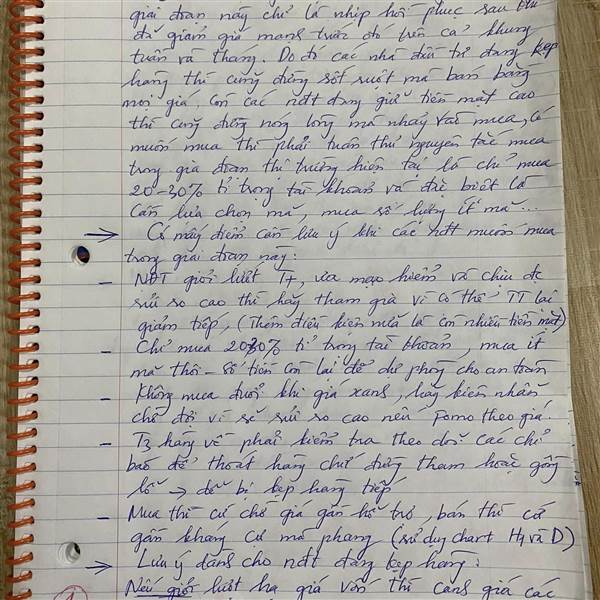 giai đoạn này chỉ là nhịp hồi phục sau khi
đã giảm giá mạnh trước đó trên cả khung
tuần và tháng. Do đó các nhà đầu tư đang kẹp
hàng thì cũng đừng sốt ruột mà bán bằng
mọi giá, còn các nđt đang giữ tiền mặt cao
thì cũng đừng nóng lòng mà nhảy vào mua, có
muốn mua thì phải tuân thủ nguyên tắc mua
trong giai đoạn thị trường hiện tại là chỉ mua
20-30% tỉ trọng tài khoản và đặc biệt là
cần lựa chọn mã, mua số lượng ít mã...
→ Có mấy điểm cần lưu ý khi các nđt muốn mua
trong giai đoạn này:
- NĐT giỏi lướt T+, ưa mạo hiểm và chịu đc
rủi ro cao thì hãy tham gia vì có thể TT lại
giảm tiếp, (Thêm điều kiện nữa là còn nhiều tiền mặt)
- Chỉ mua 20-30% tỉ trọng tài khoản, mua ít
mã thôi - Số tiền còn lại để dự phòng cho an toàn
- Không mua đuổi khi giá xanh, hãy kiên nhẫn
chờ đợi vì sẽ rủi ro cao nếu Fomo theo giá.
- T3 hàng về phải kiểm tra theo dõi các chỉ
báo để thoát hàng chứ đừng tham hoặc gồng
lỗ → dễ bị kẹp hàng tiếp
- Mua thì cứ chờ giá gần hỗ trợ, bán thì cứ
gần kháng cự mà phang (sử dụng chart H4 và D)
→ Lưu ý dành cho nđt đang kẹp hàng:
Nếu giỏi lướt hạ giá vốn thì canh giá các
1